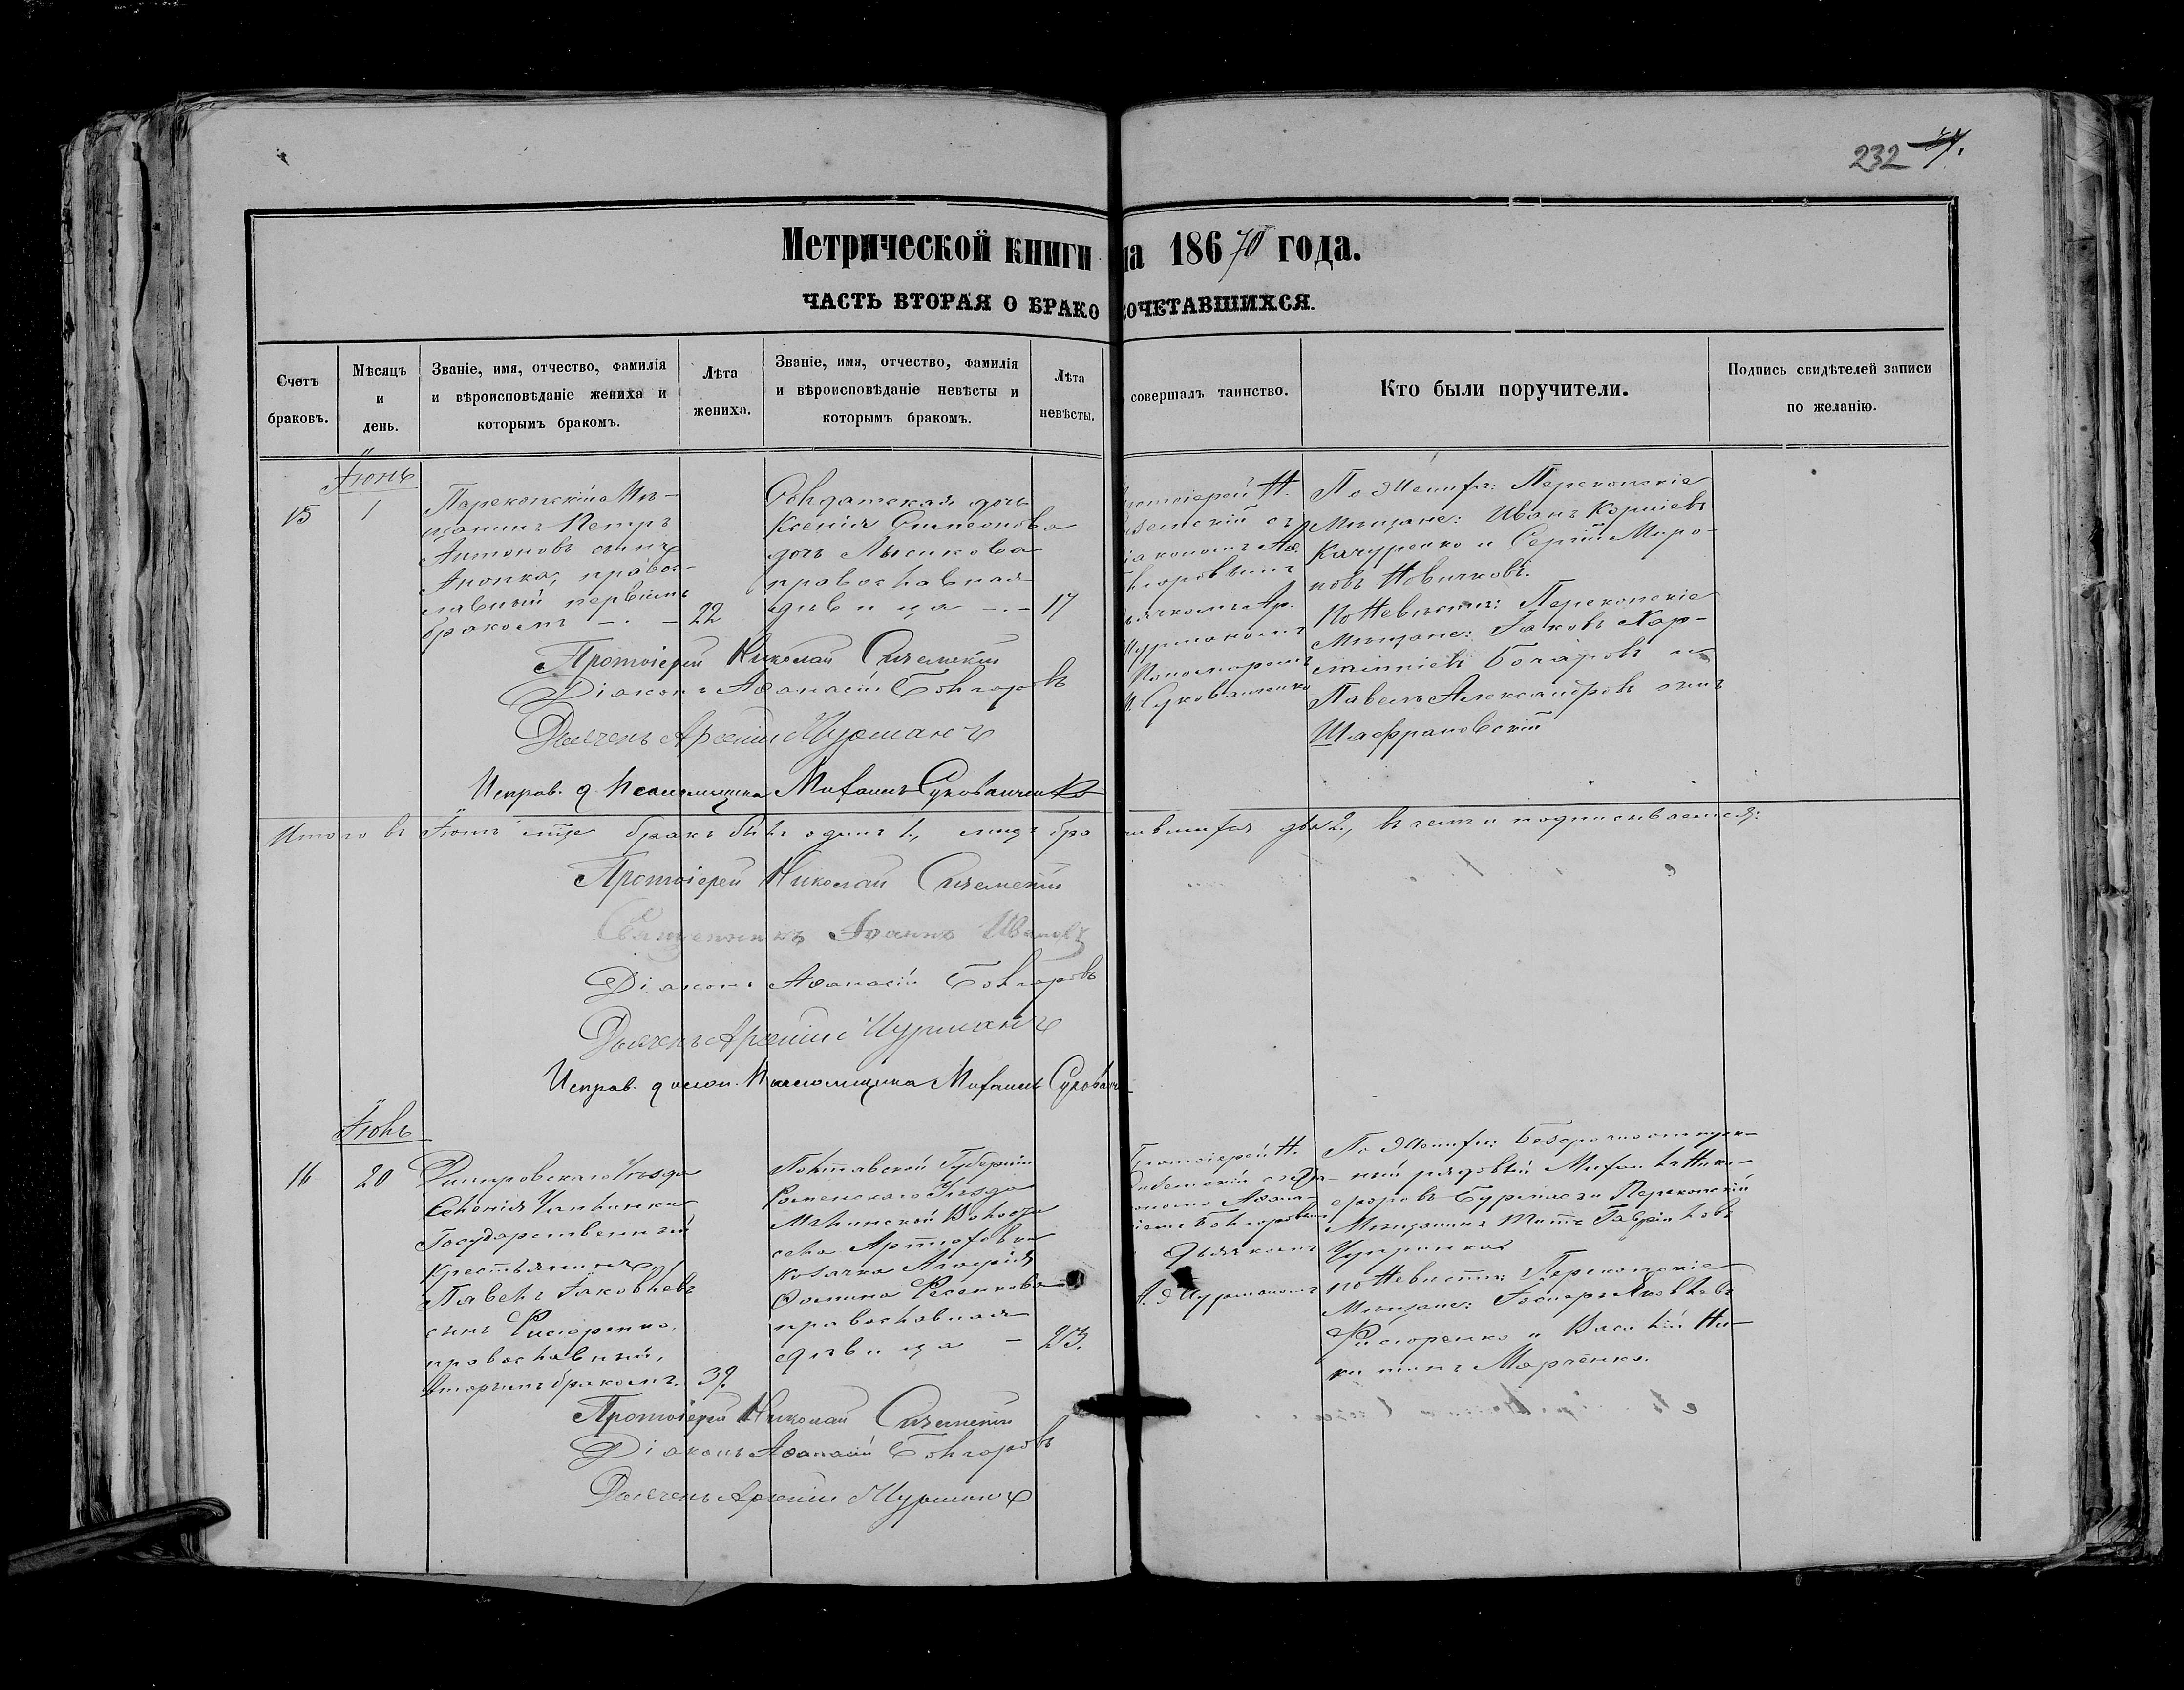 232
Метрической книги на 18670 года.
ЧАСТЬ ВТОРАЯ О БРАКОСОЧЕТАВШИХСЯ.
Счетъ браковъ.
Мѣсяцъ и день.
Званіе, имя, отчество, фамилія
и вѣроисповѣданіе жениха и
которымъ бракомъ.
Лѣта
жениха.
Званіе, имя, отчество, фамилія
и вѣроисповѣданіе невѣсты и
которымъ бракомъ.
Лѣта
невѣсты.
совершалъ таинство.
Кто были поручители.
Подпись свидѣтелей записи
по желанію.
Іюнь
15
1
Перекопскій Мѣ-
щанинъ Петръ
Антоновъ сынъ
правос-
лавный первымъ
бракомъ
22
Солдатская дочь
Ксенія Симеонова
дочь Лысикова
православная
дѣвица
17
Протоіерей Н.
съ
Діакономъ Аѳ.
Болгоровымъ
Ар.
Пономаремъ
По Женихѣ: Перекопскіе
Мѣщане: Иванъ Корніевъ
Качуренко и Сергій Миро-
новъ Новичковъ.
По Невѣстѣ: Перекопскіе
Мѣщане: Іаковъ Хар-
Бочаровъ и
Павелъ Александровъ сынъ
Шафрановскій
Протоіерей Николай
Діаконъ Аѳанасій Болгоровъ
Дьячекъ Арсеній
Исправ. д. Псаломщика Михаилъ
Итого въ Іюнѣ м-цѣ бракъ былъ одинъ 1., лицъ бра
два 2., въ чемъ и подписываемся:
Протоіерей Николай
Священникъ Іоаннъ Ивановъ
Діаконъ Аѳанасій Болгоровъ
Дьячекъ Арсеній
Исправ. долж. Псаломщика Михаилъ
Іюль
16
20
Днѣпровскаго Уѣзда
Селенія Чаплинки
Государственный
Крестьянинъ
Павелъ Іаковлевъ
сынъ
православный,
вторымъ бракомъ.
39.
Полтавской Губерніи
Роменскаго Уѣзда
Волости
села Артюховки
козачка Агафія
Ѳомина Фесенкова
православная
дѣвица
23.
Протоіерей Н.
Аѳана-
сіемъ Болгоровымъ
Дьячкомъ
По Женихѣ: Безсрочноотпуск-
ный рядовый Михаилъ Ники-
форовъ и Перекопскій
Мѣщанинъ Титъ Гавріиловъ
Чупринко
по Невѣстѣ: Перекопскіе
Мѣщане: Яковлевъ
и Василій Ни-
китинъ Марченко.
Протоіерей Николай
Діаконъ Аѳанасій Болгоровъ
Дьячекъ Арсеній